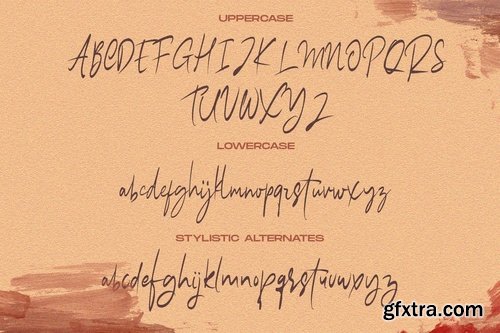 UPPERCASE
ABCDEFGHIJKLMNOPQRS
TUVWXYZ
LOWERCASE
abcdefghijklmnopqrstuvwxyz
STYLISTIC ALTERNATES
abcdefghijklmnopqrstuvwxyz
gfxtra.com